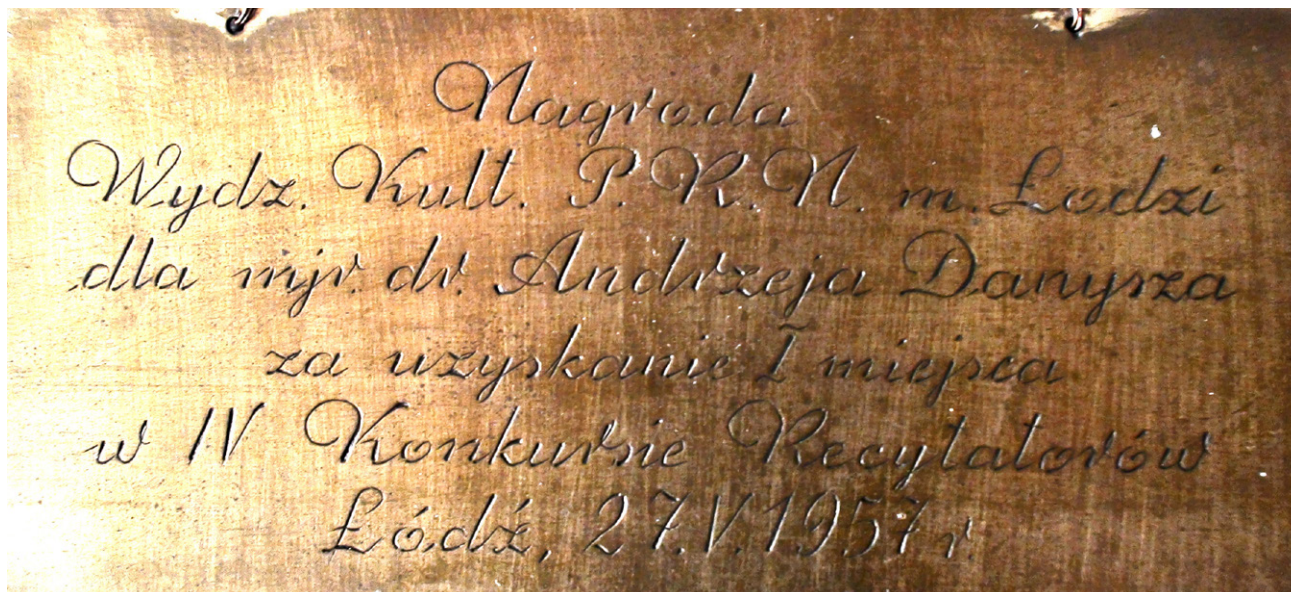 Nagroda
Wydz. Kult. P.R.N. m. Łodzi
dla mjr. dr. Andrzeja Danysza
za uzyskanie I miejsca
w IV Konkursie Recytatorów
Łódź, 27.V.1957 r.